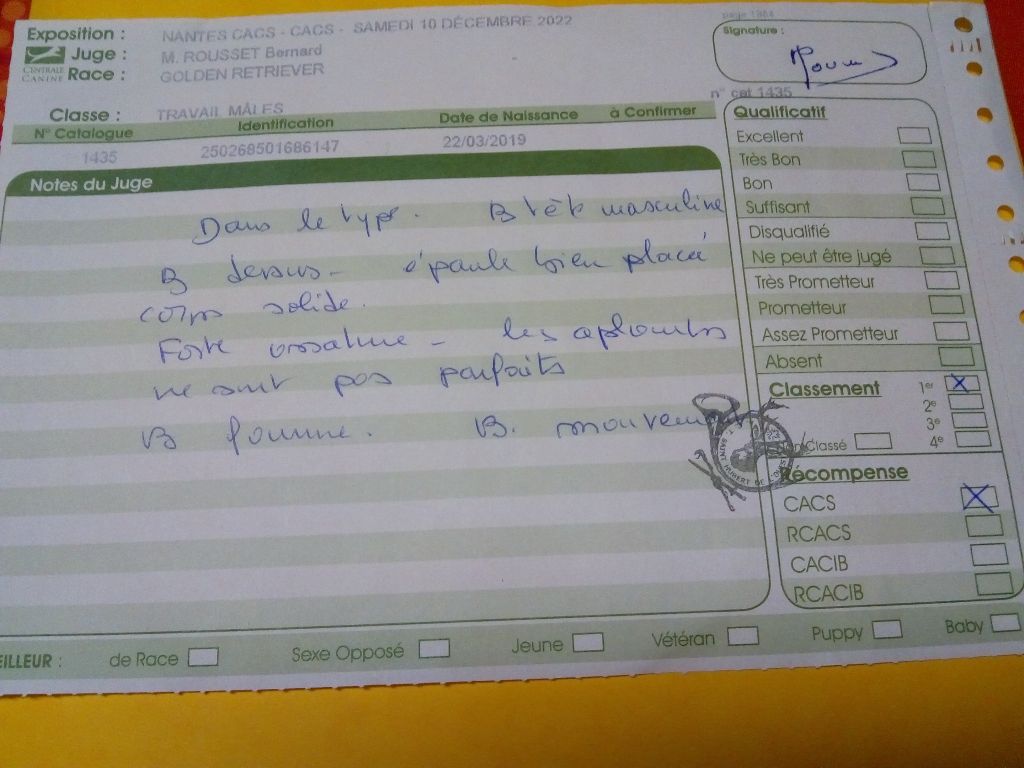 page 1364
Exposition : NANTES CACS - CACS - SAMEDI 10 DÉCEMBRE 2022
Signature :
CENTRALE CANINE
Juge : M. ROUSSET Bernard
Race : GOLDEN RETRIEVER
n° cat 1435
Classe : TRAVAIL MÂLES
N° Catalogue Identification Date de Naissance à Confirmer
1435 250268501686147 22/03/2019
Notes du Juge
Dans le type. B tête masculine
B dessus - épaule bien placé
corps solide.
Forte ossature - les aplombs
ne sont pas parfaits
B fourrure. B. mouvement
SAINT HUBERT DE L'OUEST
Qualificatif
Excellent
Très Bon
Bon
Suffisant
Disqualifié
Ne peut être jugé
Très Prometteur
Prometteur
Assez Prometteur
Absent
Classement 1er X
2e
3e
Classé 4e
Récompense
CACS X
RCACS
CACIB
RCACIB
EILLEUR : de Race Sexe Opposé Jeune Vétéran Puppy Baby